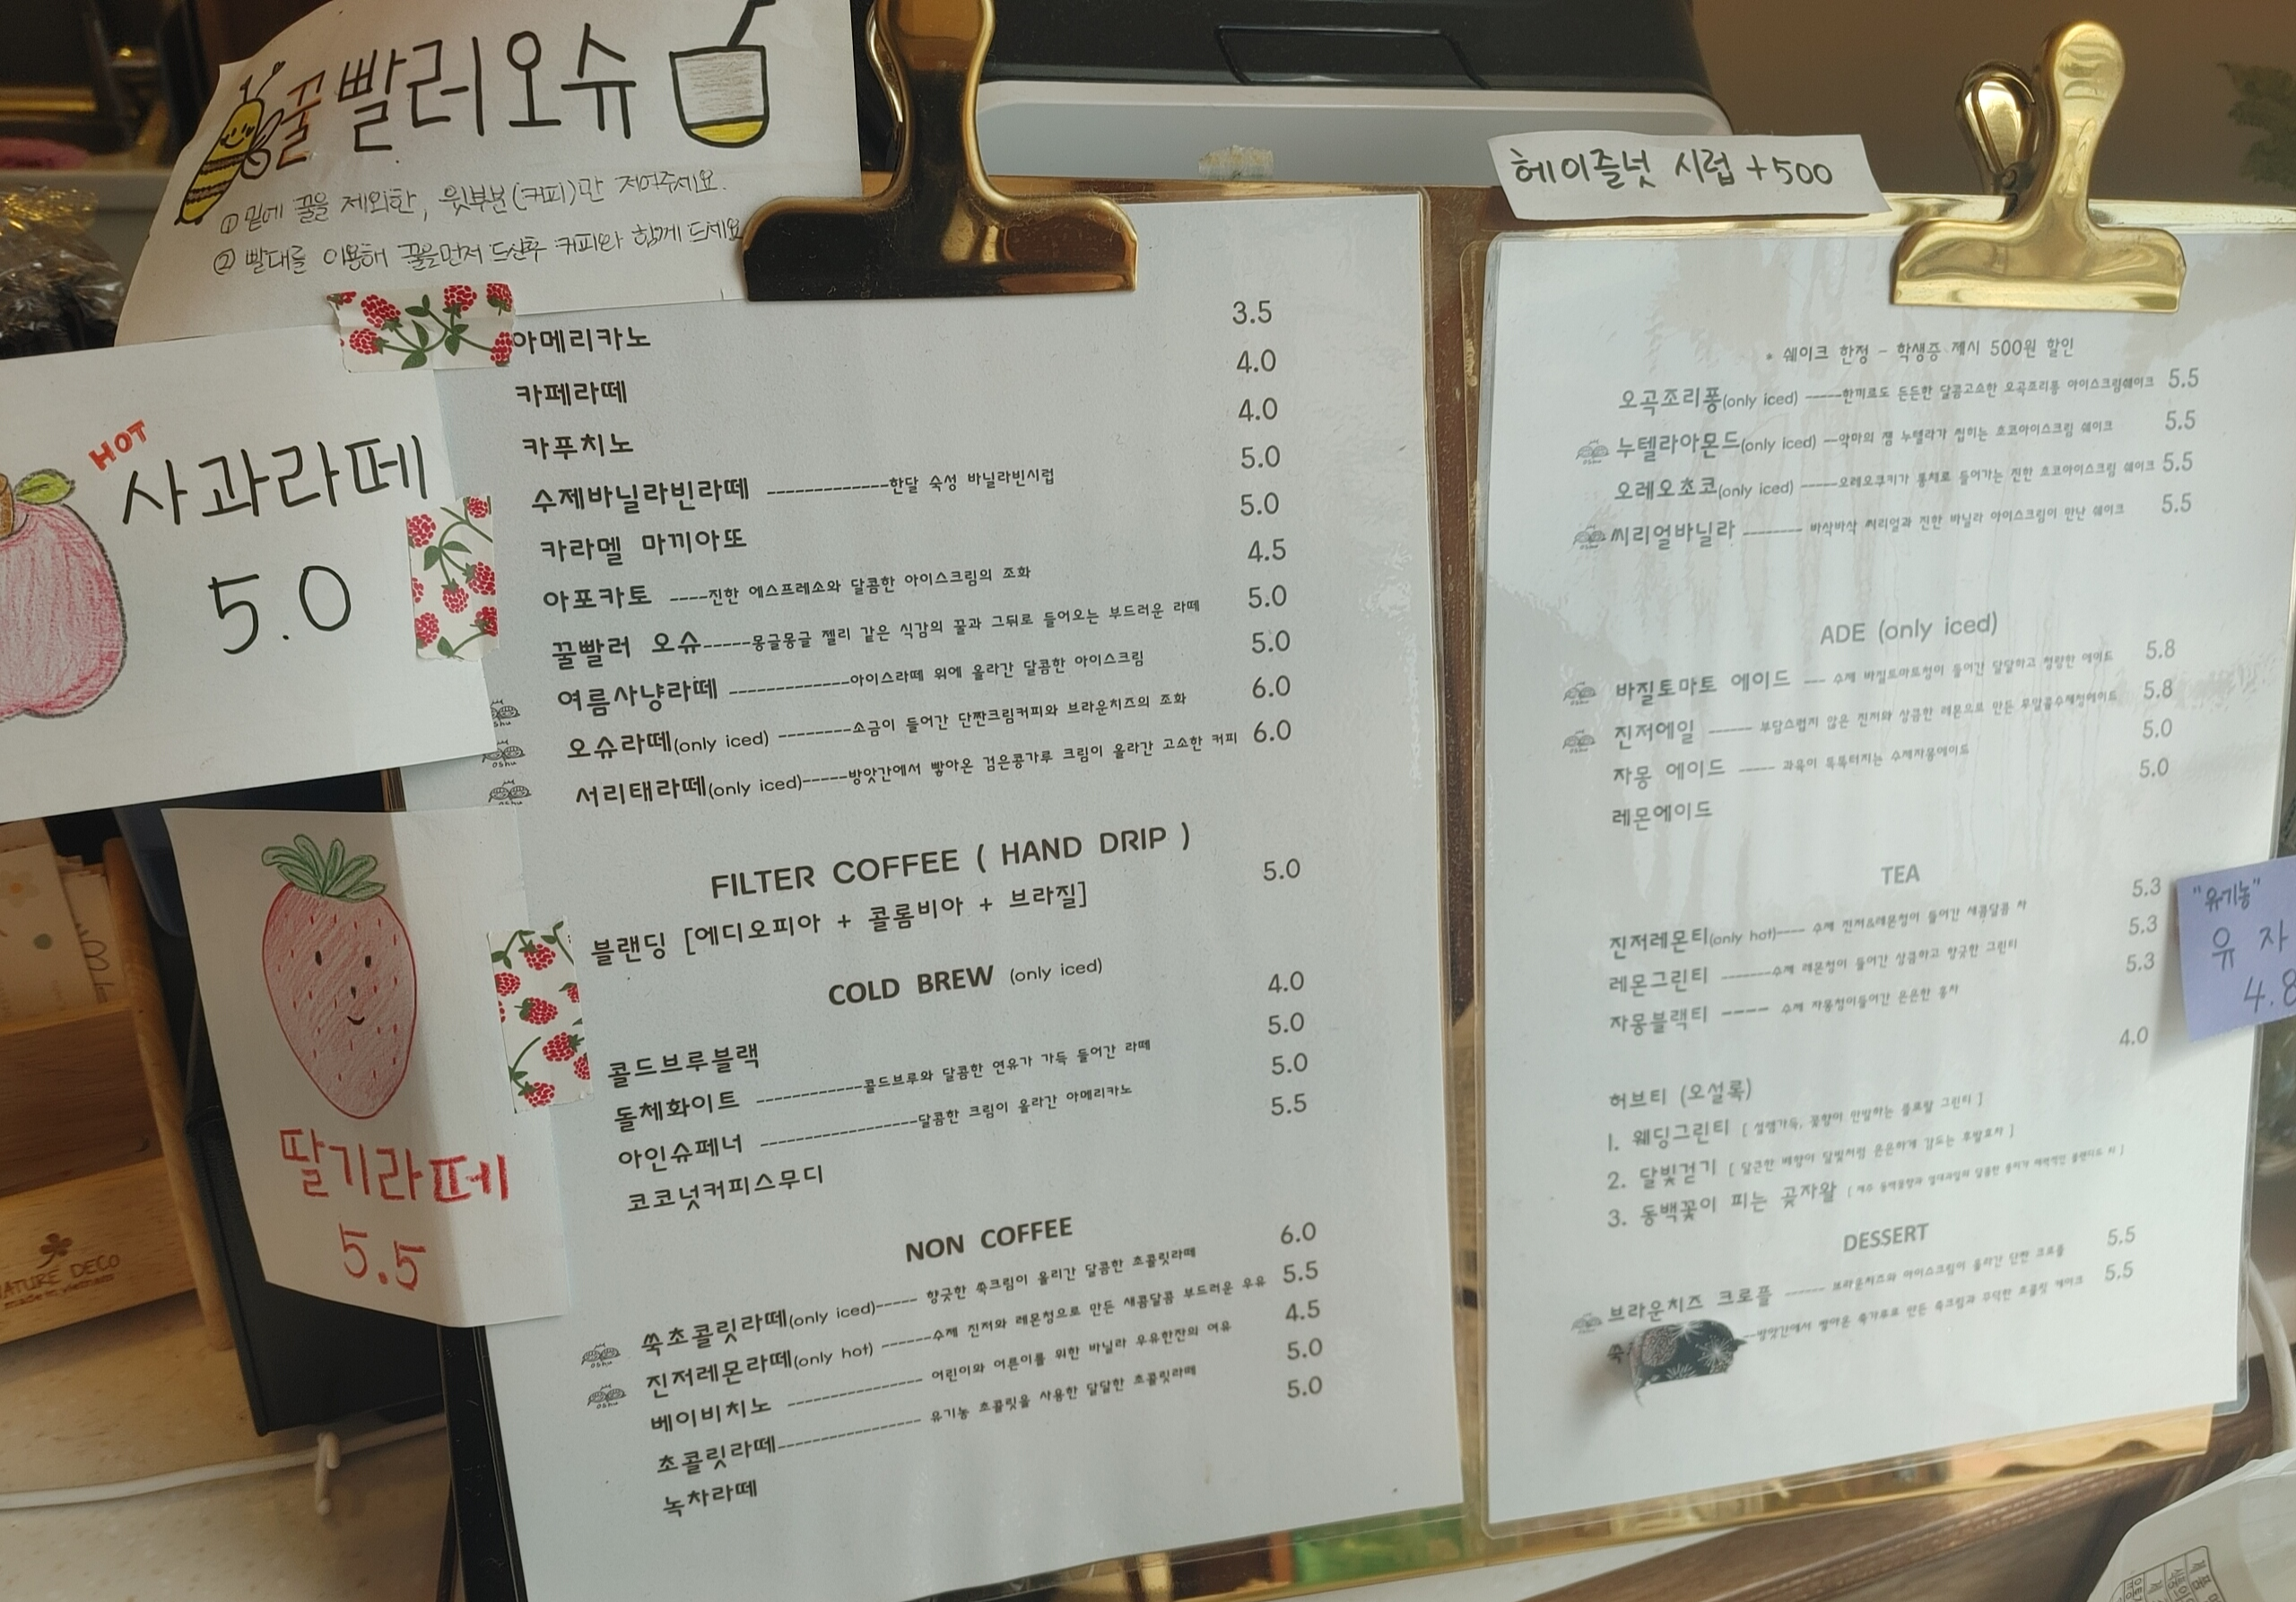 꿀빨러오슈
① 밑에 꿀을 제외한, 윗부분(커피)만 저어주세요.
② 빨대를 이용해 꿀을먼저 드신후 커피와 함께 드세요
HOT
사과라떼
5.0
딸기라떼
5.5
NATURE DECO
made in vietnam
아메리카노 3.5
카페라떼 4.0
카푸치노 4.0
수제바닐라빈라떼 -------------한달 숙성 바닐라빈시럽 5.0
카라멜 마끼아또 5.0
아포카토 ----진한 에스프레소와 달콤한 아이스크림의 조화 4.5
꿀빨러 오슈-----몽글몽글 젤리 같은 식감의 꿀과 그뒤로 들어오는 부드러운 라떼 5.0
여름사냥라떼 -------------아이스라떼 위에 올라간 달콤한 아이스크림 5.0
오슈라떼(only iced) --------소금이 들어간 단짠크림커피와 브라운치즈의 조화 6.0
서리태라떼(only iced)-----방앗간에서 빻아온 검은콩가루 크림이 올라간 고소한 커피 6.0
FILTER COFFEE ( HAND DRIP )
블랜딩 [에디오피아 + 콜롬비아 + 브라질] 5.0
COLD BREW (only iced)
콜드브루블랙 4.0
돌체화이트 ------------콜드브루와 달콤한 연유가 가득 들어간 라떼 5.0
아인슈페너 ------------------달콤한 크림이 올라간 아메리카노 5.0
코코넛커피스무디 5.5
NON COFFEE
쑥초콜릿라떼(only iced)----- 향긋한 쑥크림이 올리간 달콤한 초콜릿라떼 6.0
진저레몬라떼(only hot) ------수제 진저와 레몬청으로 만든 새콤달콤 부드러운 우유 5.5
베이비치노 --------------- 어린이와 어른이를 위한 바닐라 우유한잔의 여유 4.5
초콜릿라떼---------------- 유기농 초콜릿을 사용한 달달한 초콜릿라떼 5.0
녹차라떼 5.0
헤이즐넛 시럽 +500
* 쉐이크 한정 - 학생증 제시 500원 할인
오곡조리퐁(only iced) -----한끼로도 든든한 달콤고소한 오곡조리퐁 아이스크림쉐이크 5.5
누텔라아몬드(only iced) --악마의 잼 누텔라가 씹히는 초코아이스크림 쉐이크 5.5
오레오초코(only iced) -----오레오쿠키가 통채로 들어가는 진한 초코아이스크림 쉐이크 5.5
씨리얼바닐라 -------- 바삭바삭 씨리얼과 진한 바닐라 아이스크림이 만난 쉐이크 5.5
ADE (only iced)
바질토마토 에이드 --- 수제 바질토마토청이 들어간 달달하고 청량한 에이드 5.8
진저에일 ------ 부담스럽지 않은 진저와 상큼한 레몬으로 만든 무알콜수제청에이드 5.8
자몽 에이드 ----- 과육이 톡톡터지는 수제자몽에이드 5.0
레몬에이드 5.0
TEA
진저레몬티(only hot)---- 수제 진저&레몬청이 들어간 새콤달콤 차 5.3
레몬그린티 -------수제 레몬청이 들어간 상큼하고 향긋한 그린티 5.3
자몽블랙티 ---- 수제 자몽청이들어간 은은한 홍차 5.3
허브티 (오설록) 4.0
1. 웨딩그린티 [ 설렘가득, 꽃향이 만발하는 플로랄 그린티 ]
2. 달빛걷기 [ 달큰한 배향이 달빛처럼 은은하게 감도는 후발효차 ]
3. 동백꽃이 피는 곶자왈
DESSERT
브라운치즈 크로플 ----- 브라운치즈와 아이스크림이 올라간 단짠 크로플 5.5
쑥 --방앗간에서 빻아온 쑥가루로 만든 쑥크림과 꾸덕한 초콜릿 케이크 5.5
"유기농"
유자
4.8